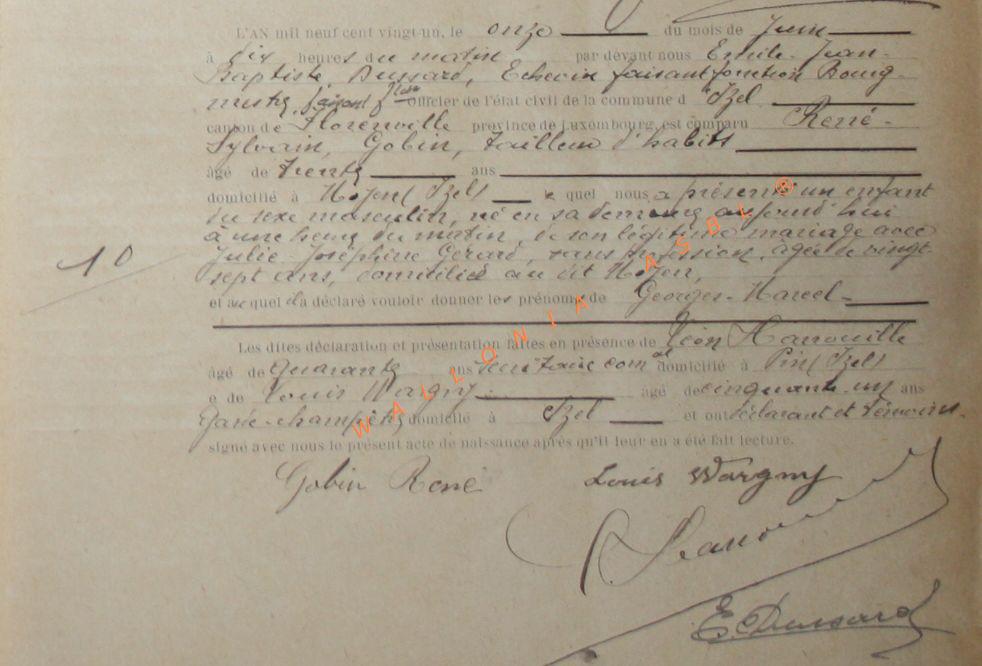 L'AN mil neuf cent vingt-un, le onze du mois de Juin
à dix heures du matin par devant nous Emile-Jean-
Baptiste Dussard, Echevin faisant fonction Bourg-
mestre, faisant Officier de l'état civil de la commune d'Izel
canton de Florenville province de Luxembourg, est comparu René-
Sylvain, Gobin, tailleur d'habits
âgé de trente ans
domicilié à Moyen (Izel) quel nous a présenté un enfant
du sexe masculin, né en sa demeure aujourd'hui
à une heure du matin, de son légitime mariage avec
Julie-Joséphine Gérard, sans profession, âgée de vingt-
sept ans, domiciliée au dit Moyen,
et auquel il a déclaré vouloir donner les prénoms de Georges-Marcel-
10
Les dites déclaration et présentation faites en présence de Léon Hanouille
âgé de quarante ans secrétaire com al domicilié à Pin (Izel)
e de Louis Wargny âgé de cinquante-un ans
Garde-champêtre domicilié à Izel et ont déclarant et témoins
signé avec nous le présent acte de naissance après qu'il leur en a été fait lecture.
Gobin René Louis Wargny
E. Dussard
WALLONIA ASBL ®